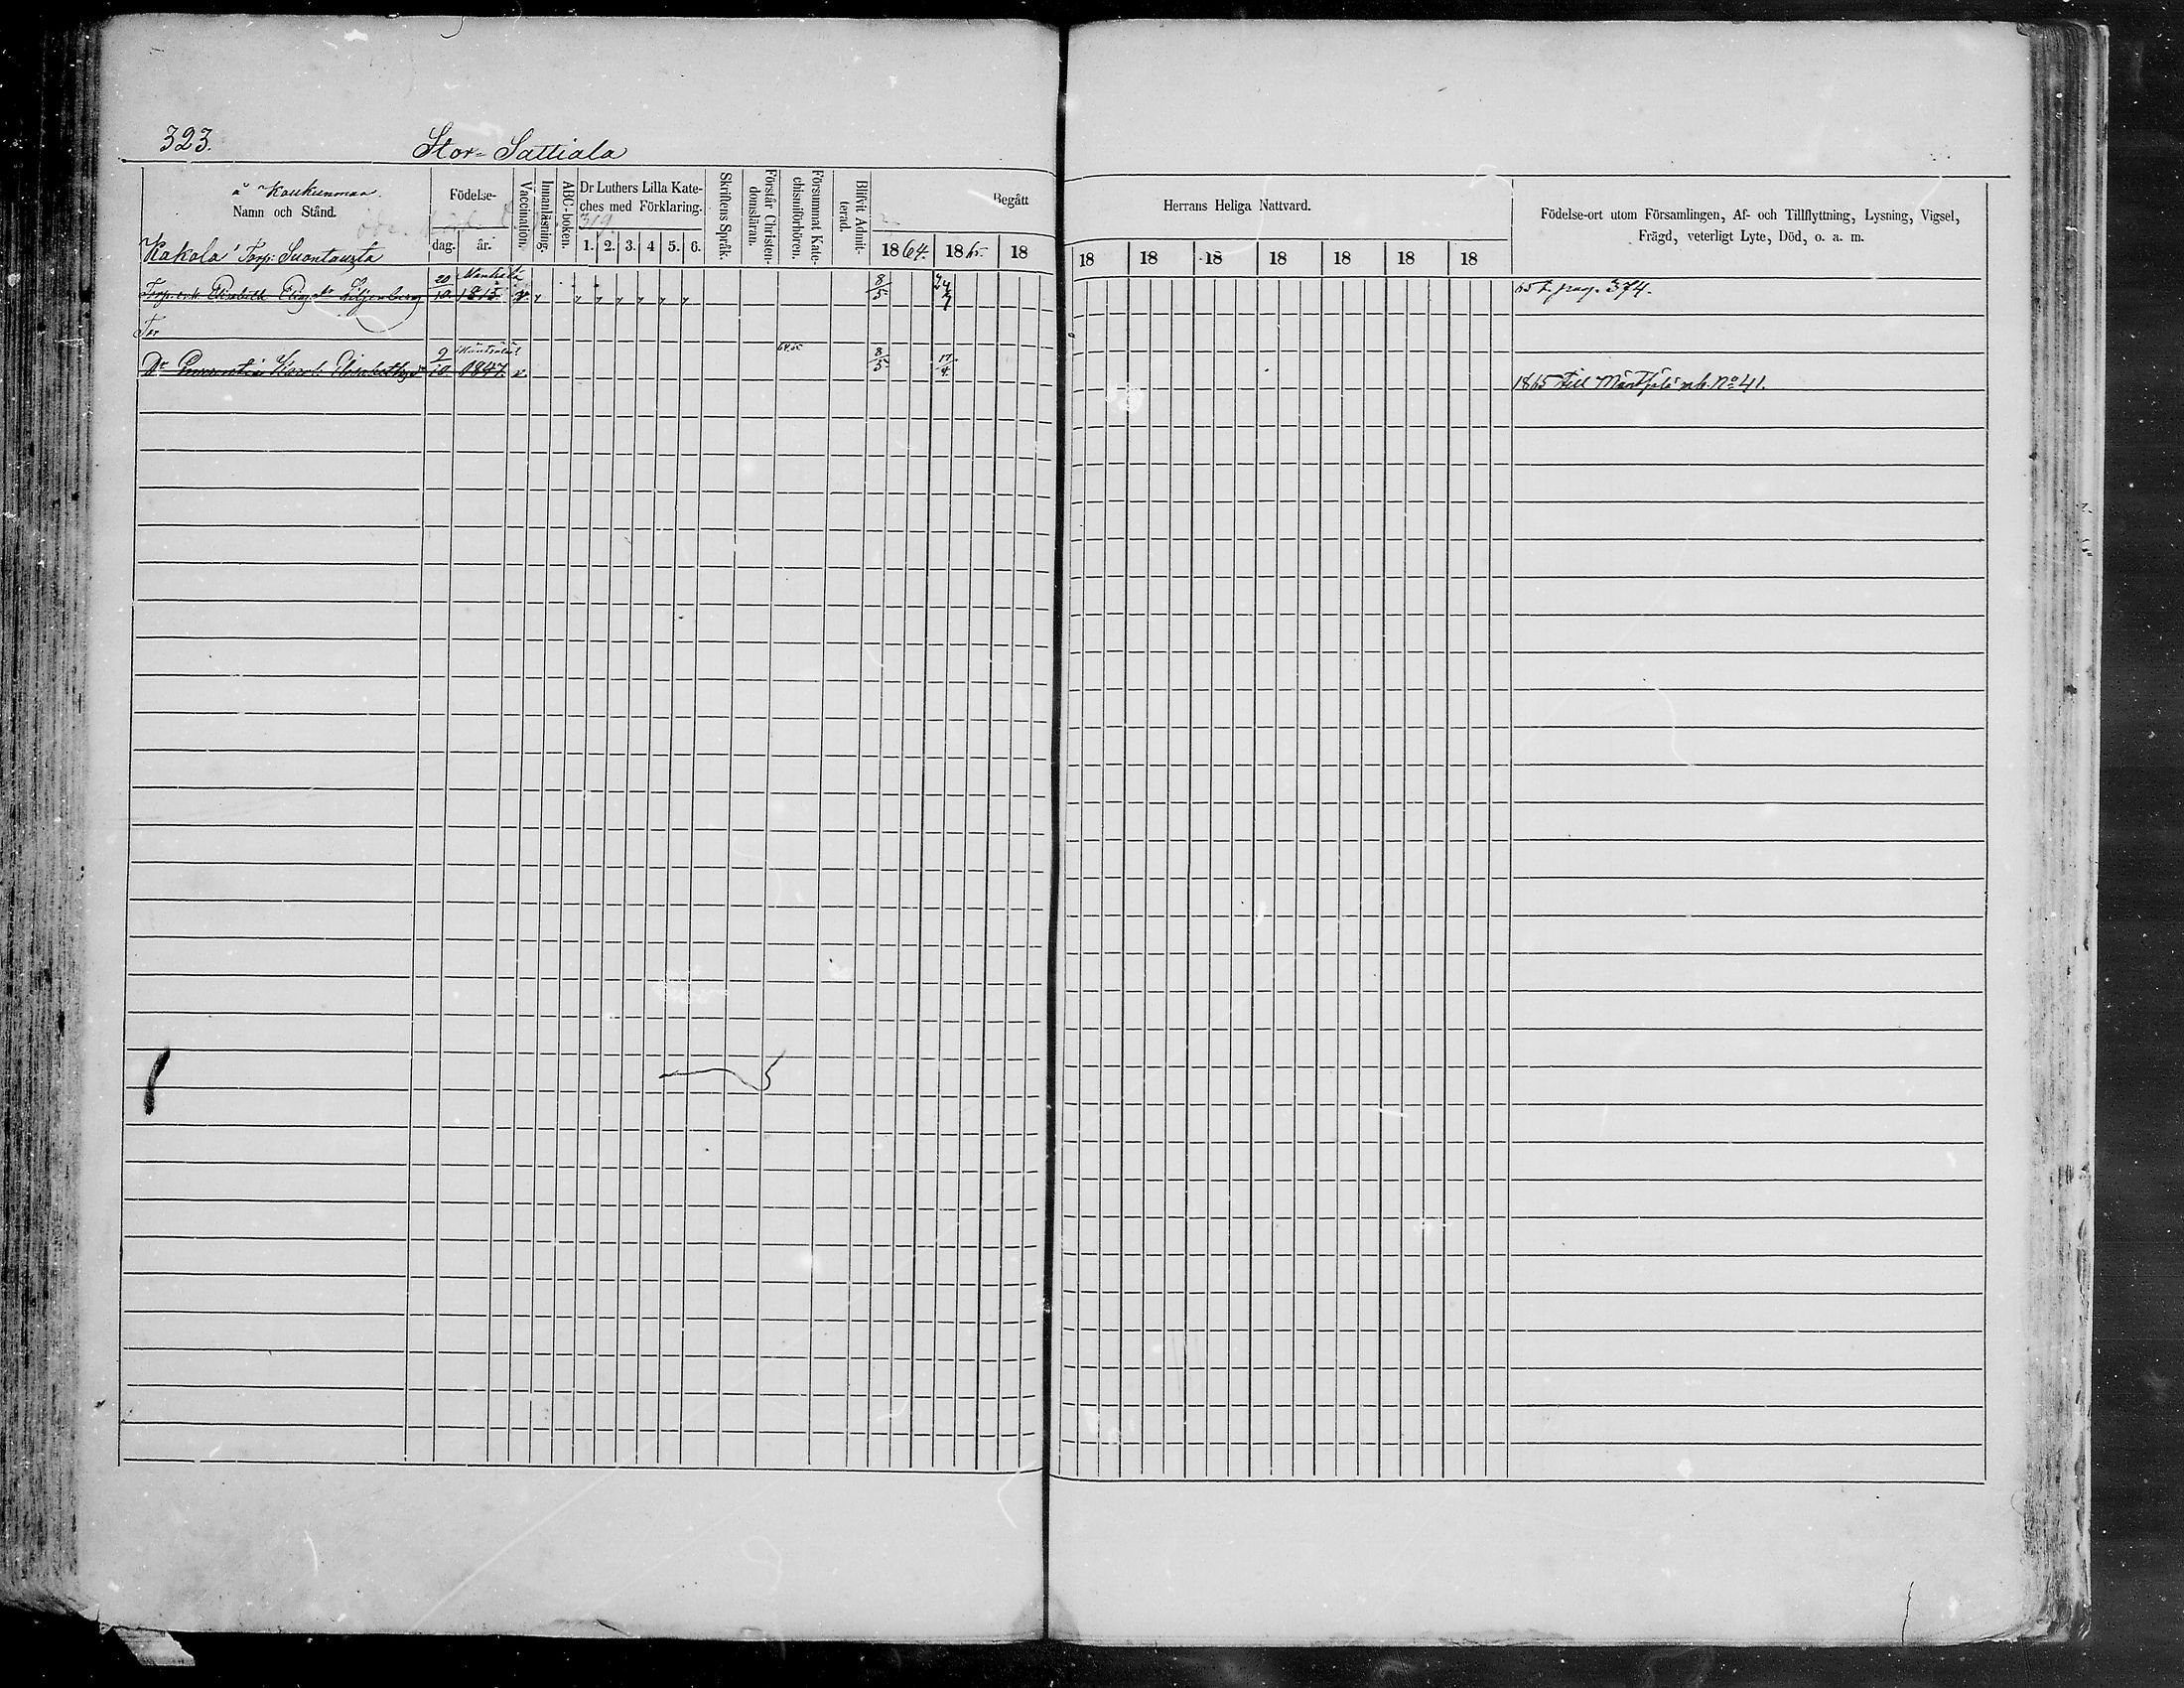 323.
Stor-Sattiala
å Kaukunmaa.
Namn och Stånd.
Kakola Torp: Suontausta
Födelse-
dag. år.
Vaccination.
Innanläsning.
ABC-boken.
Dr Luthers Lilla Kate-
ches med Förklaring.
319.
1. 2. 3. 4 5. 6.
Skriftens Språk.
Förstår Christen-
domsläran.
Försummat Kate-
chismiförhören.
Blifvit Admit-
terad.
Begått
1864. 1865. 18
Herrans Heliga Nattvard.
18 18 18 18 18 18 18
Födelse-ort utom Församlingen, Af- och Tillflyttning, Lysning, Vigsel,
Frägd, veterligt Lyte, Död, o. a. m.
Elisabeth Eliaedr Liljenberg 20/10 1815 v 8/5
65 t. pag. 374.
Tor
Dr 2/10 1847. v. 64.65 8/5 17/4
1865 till Mäntsälä utb. No 41.